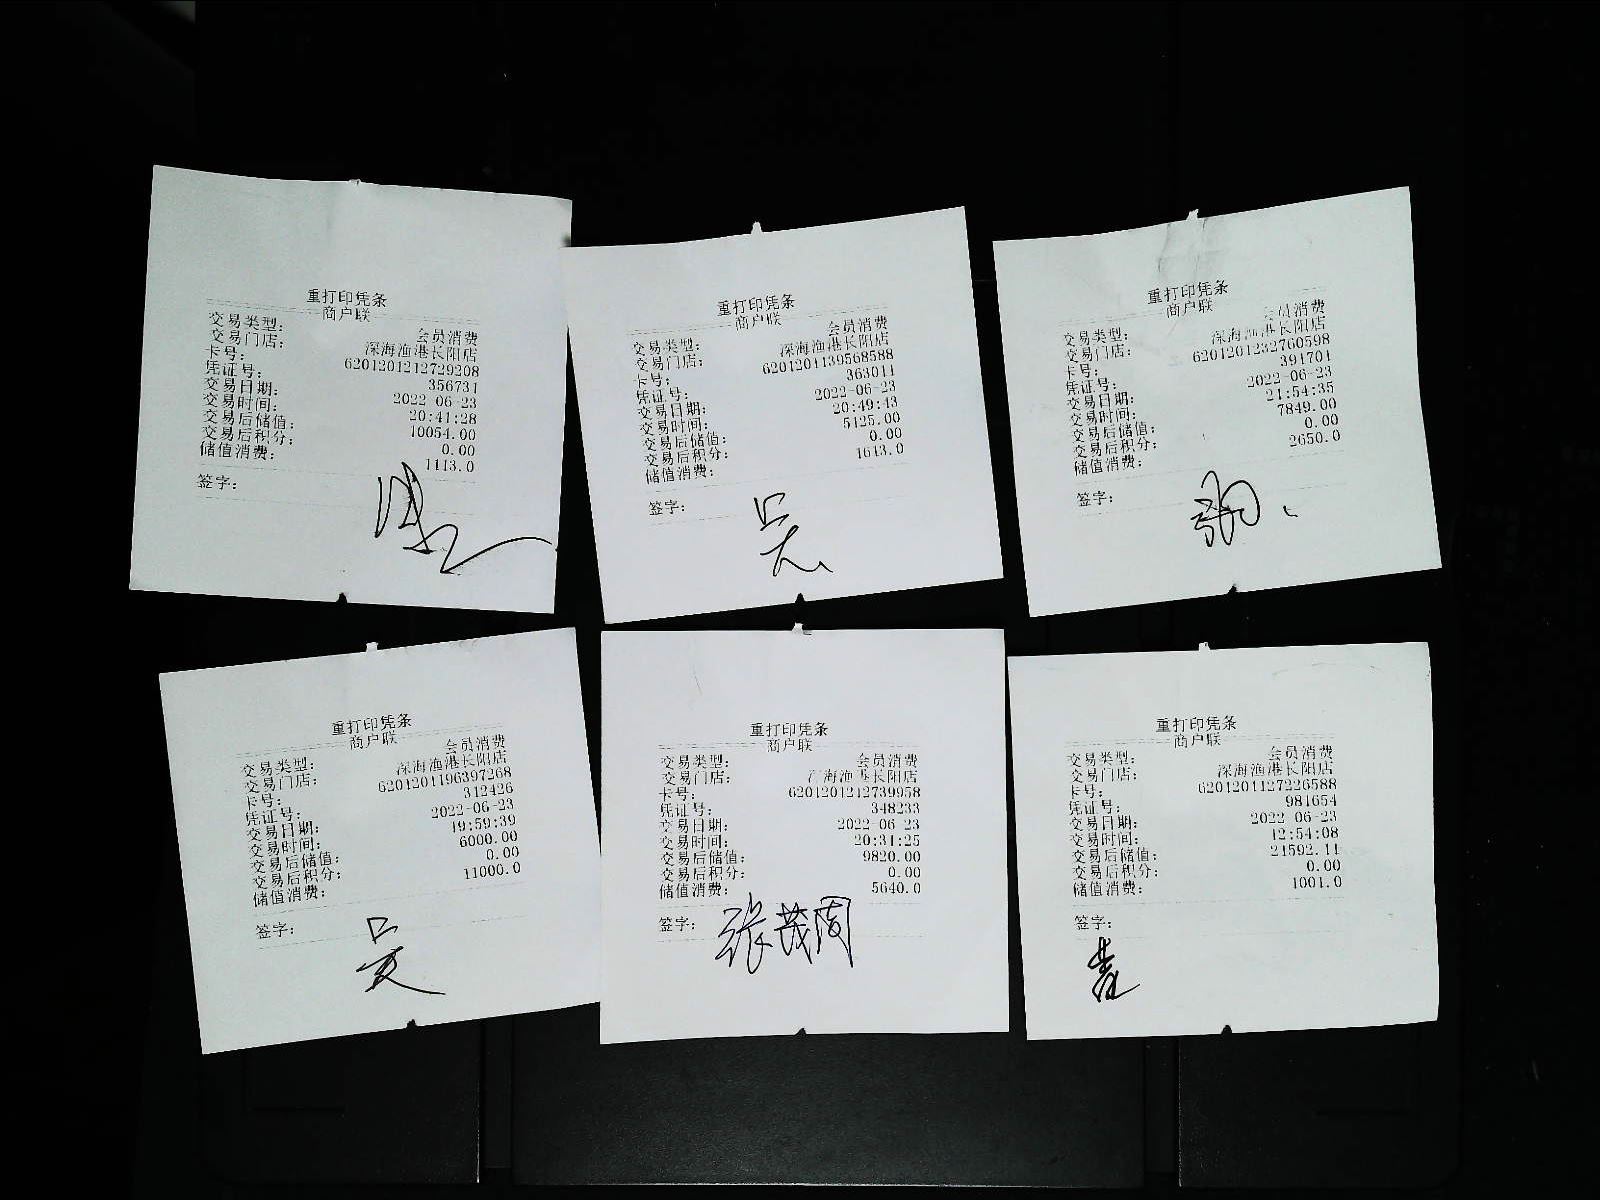 重打印凭条
商户联
交易类型： 会员消费
交易门店： 深海渔港长阳店
卡号： 6201201212729208
凭证号： 356731
交易日期： 2022-06-23
交易时间： 20:41:28
交易后储值： 10054.00
交易后积分： 0.00
储值消费： 1113.0
签字：
重打印凭条
商户联
交易类型： 会员消费
交易门店： 深海渔港长阳店
卡号： 6201201139568588
凭证号： 363011
交易日期： 2022-06-23
交易时间： 20:49:43
交易后储值： 5125.00
交易后积分： 0.00
储值消费： 1643.0
签字： 吴
重打印凭条
商户联
交易类型： 会员消费
交易门店： 深海渔港长阳店
卡号： 6201201232760598
凭证号： 391701
交易日期： 2022-06-23
交易时间： 21:54:35
交易后储值： 7849.00
交易后积分： 0.00
储值消费： 2650.0
签字：
重打印凭条
商户联
交易类型： 会员消费
交易门店： 深海渔港长阳店
卡号： 6201201196397268
凭证号： 312426
交易日期： 2022-06-23
交易时间： 19:59:39
交易后储值： 6000.00
交易后积分： 0.00
储值消费： 11000.0
签字： 吴
重打印凭条
商户联
交易类型： 会员消费
交易门店： 深海渔港长阳店
卡号： 6201201212739958
凭证号： 348233
交易日期： 2022-06-23
交易时间： 20:31:25
交易后储值： 9820.00
交易后积分： 0.00
储值消费： 5640.0
签字： 张茂周
重打印凭条
商户联
交易类型： 会员消费
交易门店： 深海渔港长阳店
卡号： 6201201127226588
凭证号： 981654
交易日期： 2022-06-23
交易时间： 12:54:08
交易后储值： 21592.11
交易后积分： 0.00
储值消费： 1001.0
签字：